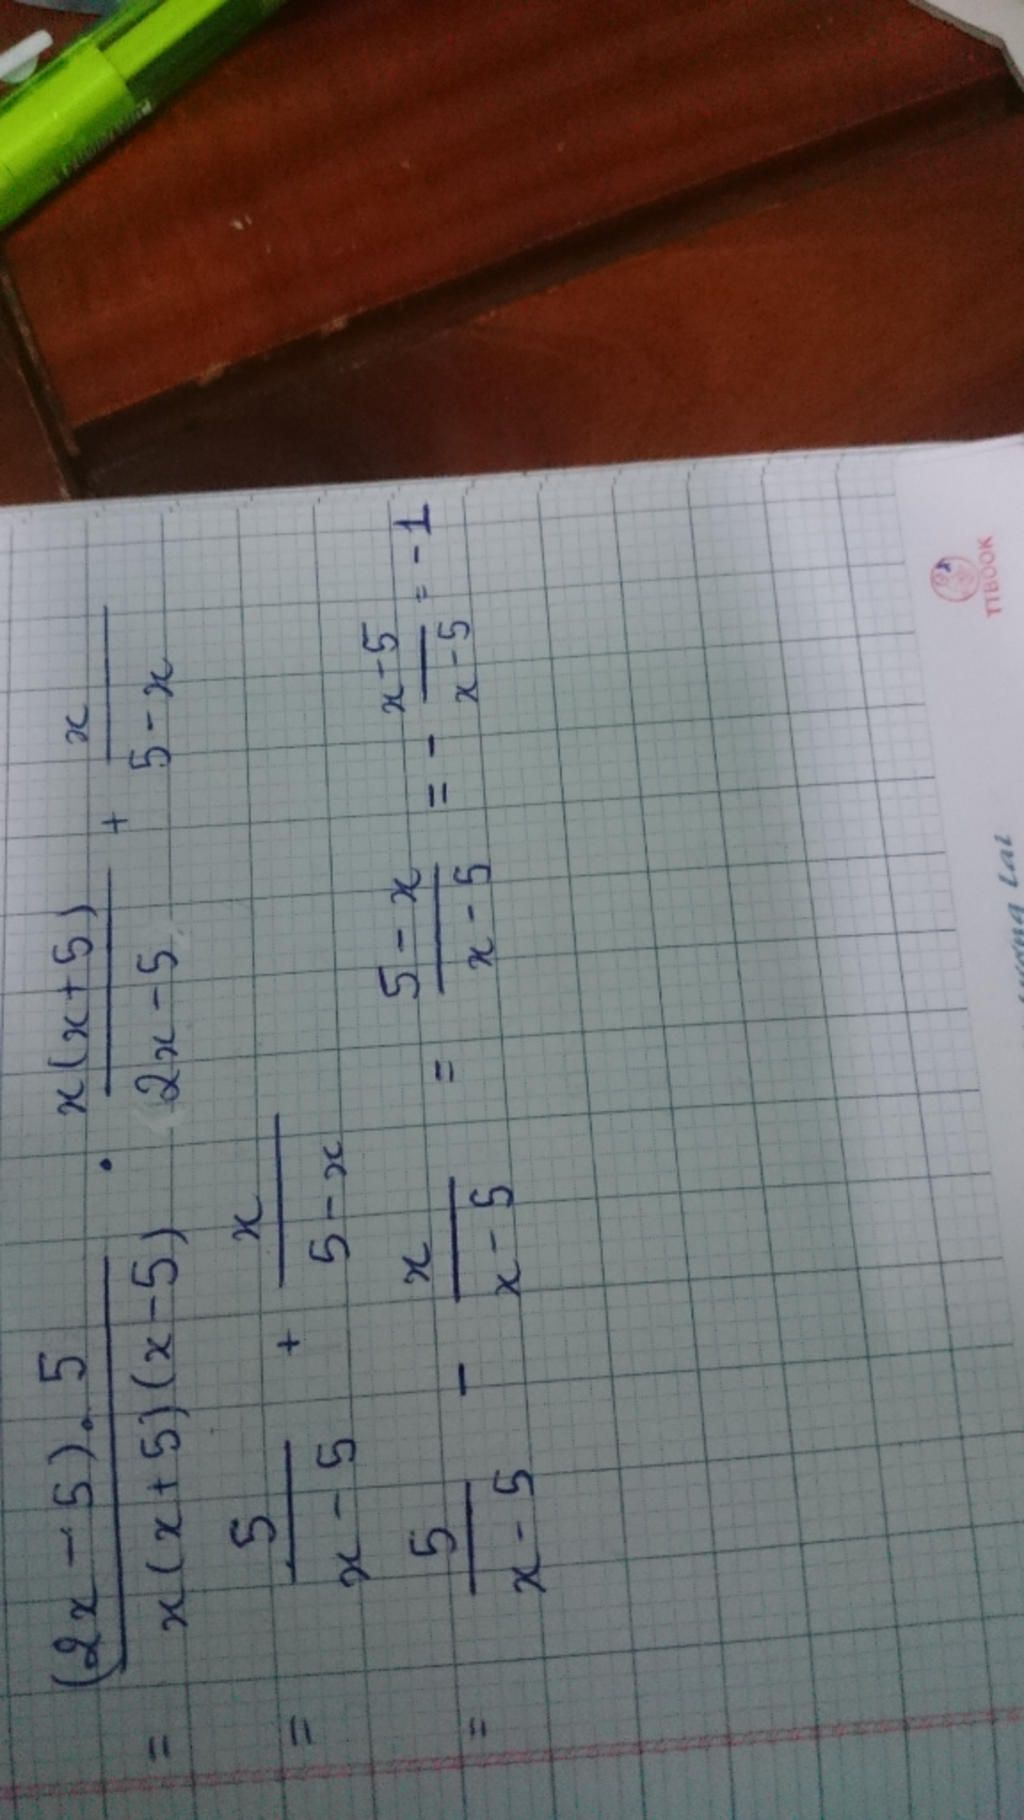 = (2x - 5).5 / x(x+5)(x-5) . x(x+5) / 2x-5 + x / 5-x
= 5 / x-5 + x / 5-x
= 5 / x-5 - x / x-5 = 5-x / x-5 = - x-5 / x-5 = -1
TTBOOK
lai